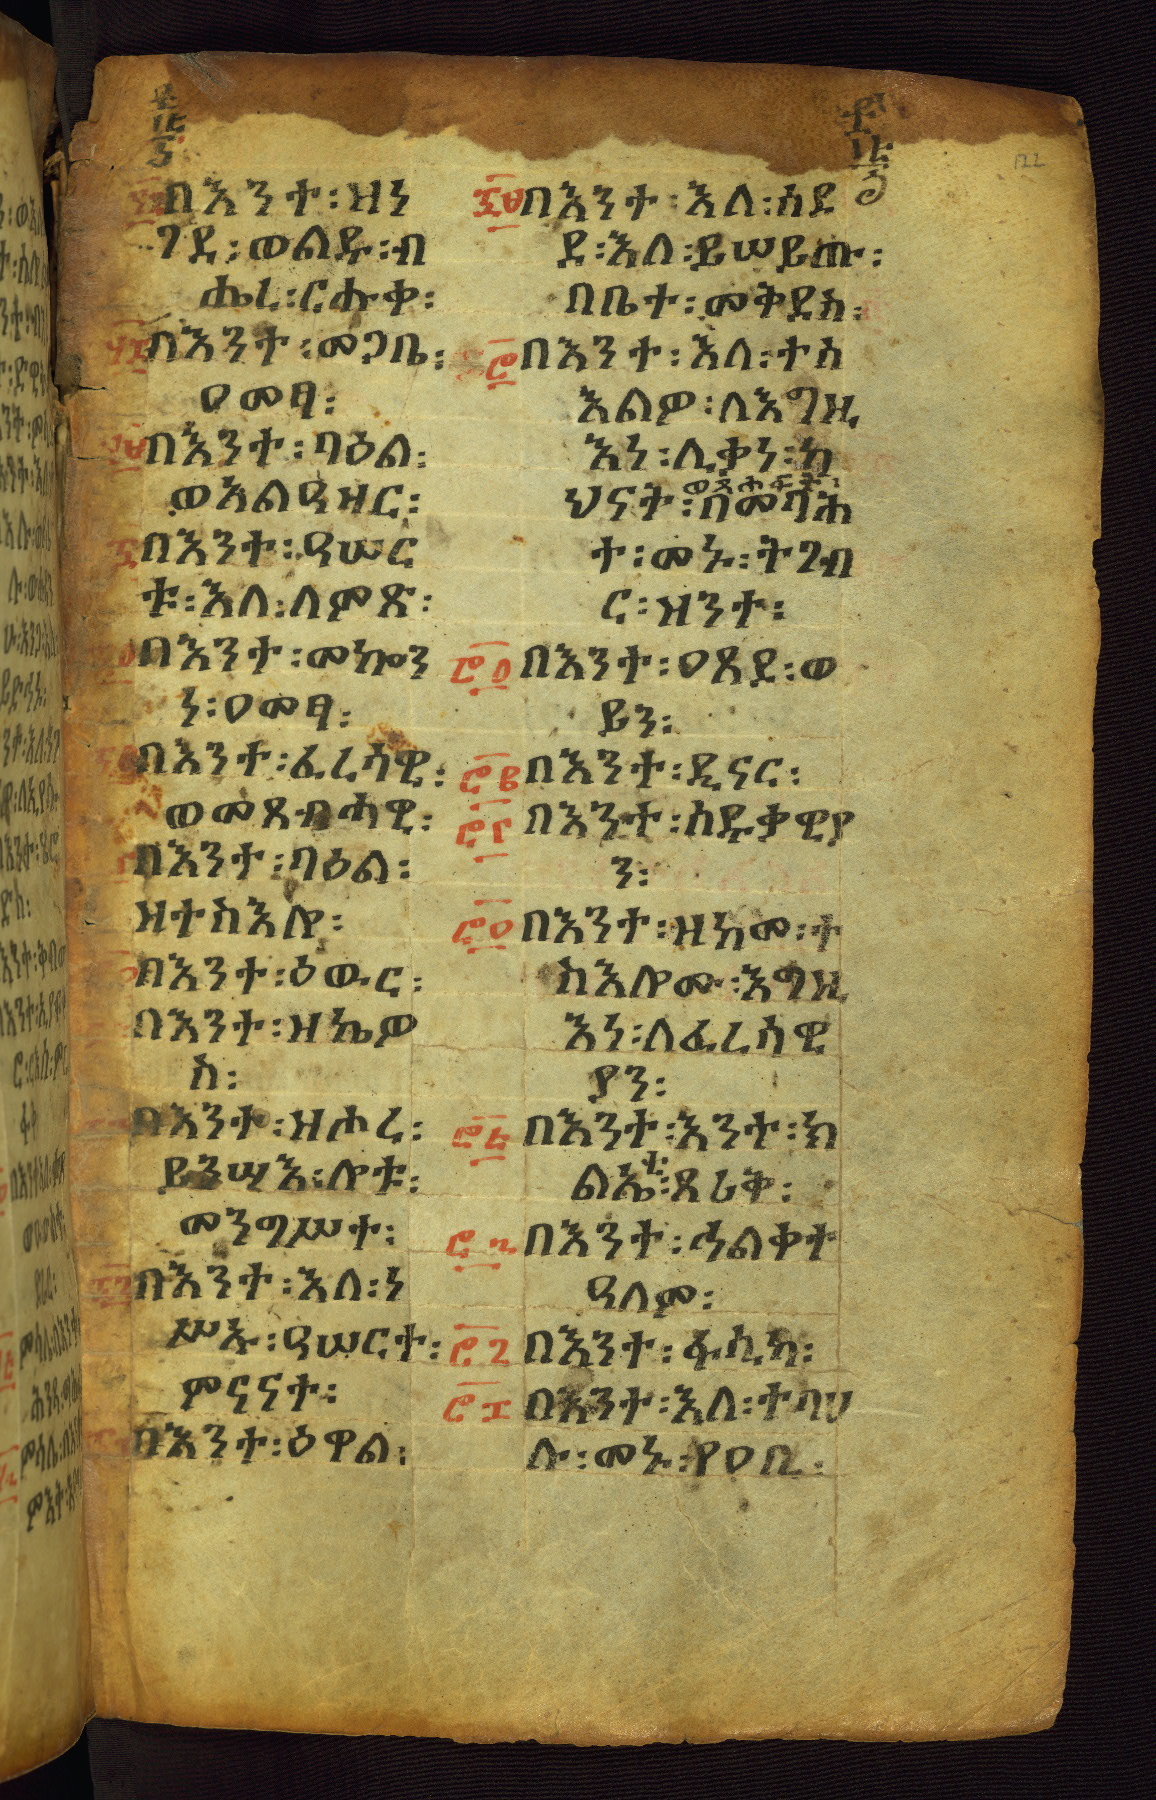 በእንተ፡ዝነ
ገደ፡ወልዱ፡ብ
ሔረ፡ርሑቀ፡
በእንተ፡መጋቤ፡
ዐመፃ፡
በእንተ፡ባዕል፡
ወአልዓዛር፡
በእንተ፡ዓሠር
ቱ፡እለ፡ለምጽ፡
በእንተ፡መኰን
ነ፡ዐመፃ፡
በእንተ፡ፈሪሳዊ፡
ወመጸብሓዊ፡
በእንተ፡ባዕል፡
ዘተስእሎ፡
በእንተ፡ዕውር፡
በእንተ፡ዘኬዎ
ስ፡
በእንተ፡ዝሖረ፡
ይንሣእ፡ሎቱ፡
መንግሥተ፡
በእንተ፡እለ፡ነ
ሥኡ፡ዓሠርተ፡
ምናናተ፡
በእንተ፡ዕዋል፡
፸፬ በእንተ፡እለ፡ሰደ
ደ፡እለ፡ይሠይጡ፡
በቤተ፡መቅደስ፡
በእንተ፡እለ፡ተስ
እልዎ፡ለእግዚ
እነ፡ሊቃነ፡ካ
ህናት፡ወጸሐፍት፡በመባሕ
ተ፡መኑ፡ትገብ
ር፡ዝንተ፡
በእንተ፡ዐጸደ፡ወ
ይን፡
በእንተ፡ዲናር፡
በእንተ፡ሰዱቃዊያ
ን፡
በእንተ፡ዝከመ፡ተ
ስእሎሙ፡እግዚ
እነ፡ለፈሪሳዊ
ያን፡
በእንተ፡እንተ፡ክ
ልኤቱ፡ጸሪቀ፡
በእንተ፡ኅልቀተ
ዓለም፡
በእንተ፡ፋሲካ፡
በእንተ፡እለ፡ተባህ
ሉ፡መኑ፡የዐቢ፡
122